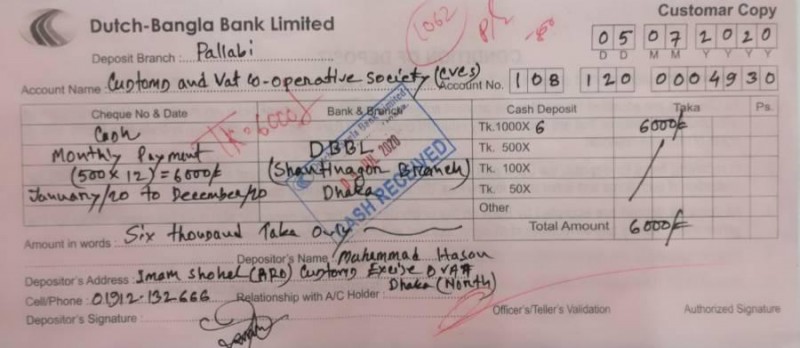 Dutch-Bangla Bank Limited
Customar Copy
1062
05 07 2020
D D M M Y Y Y Y
Deposit Branch : Pallabi
Account Name : Customs and Vat Co-operative Society (cves) Account No. 108 120 0004930
Cheque No & Date Bank & Branch Cash Deposit Taka Ps.
Cash Tk=6000/- Tk.1000X 6 6000/-
Monthly Payment DBBL Tk. 500X
(500x12)=6000/- (Shantinagon Branch) Tk. 100X
January/20 to December/20 Dhaka Tk. 50X
CASH RECEIVED
Other
Total Amount 6000/-
Amount in words : Six thousand Taka Only
Depositor's Name : Muhammad Hasan
Depositor's Address : Imam Shohel (ARO) Customs Excise & VAT
Dhaka (North)
Cell/Phone : 01912-132666 Relationship with A/C Holder :
Depositor's Signature : Officer's/Teller's Validation Authorized Signature